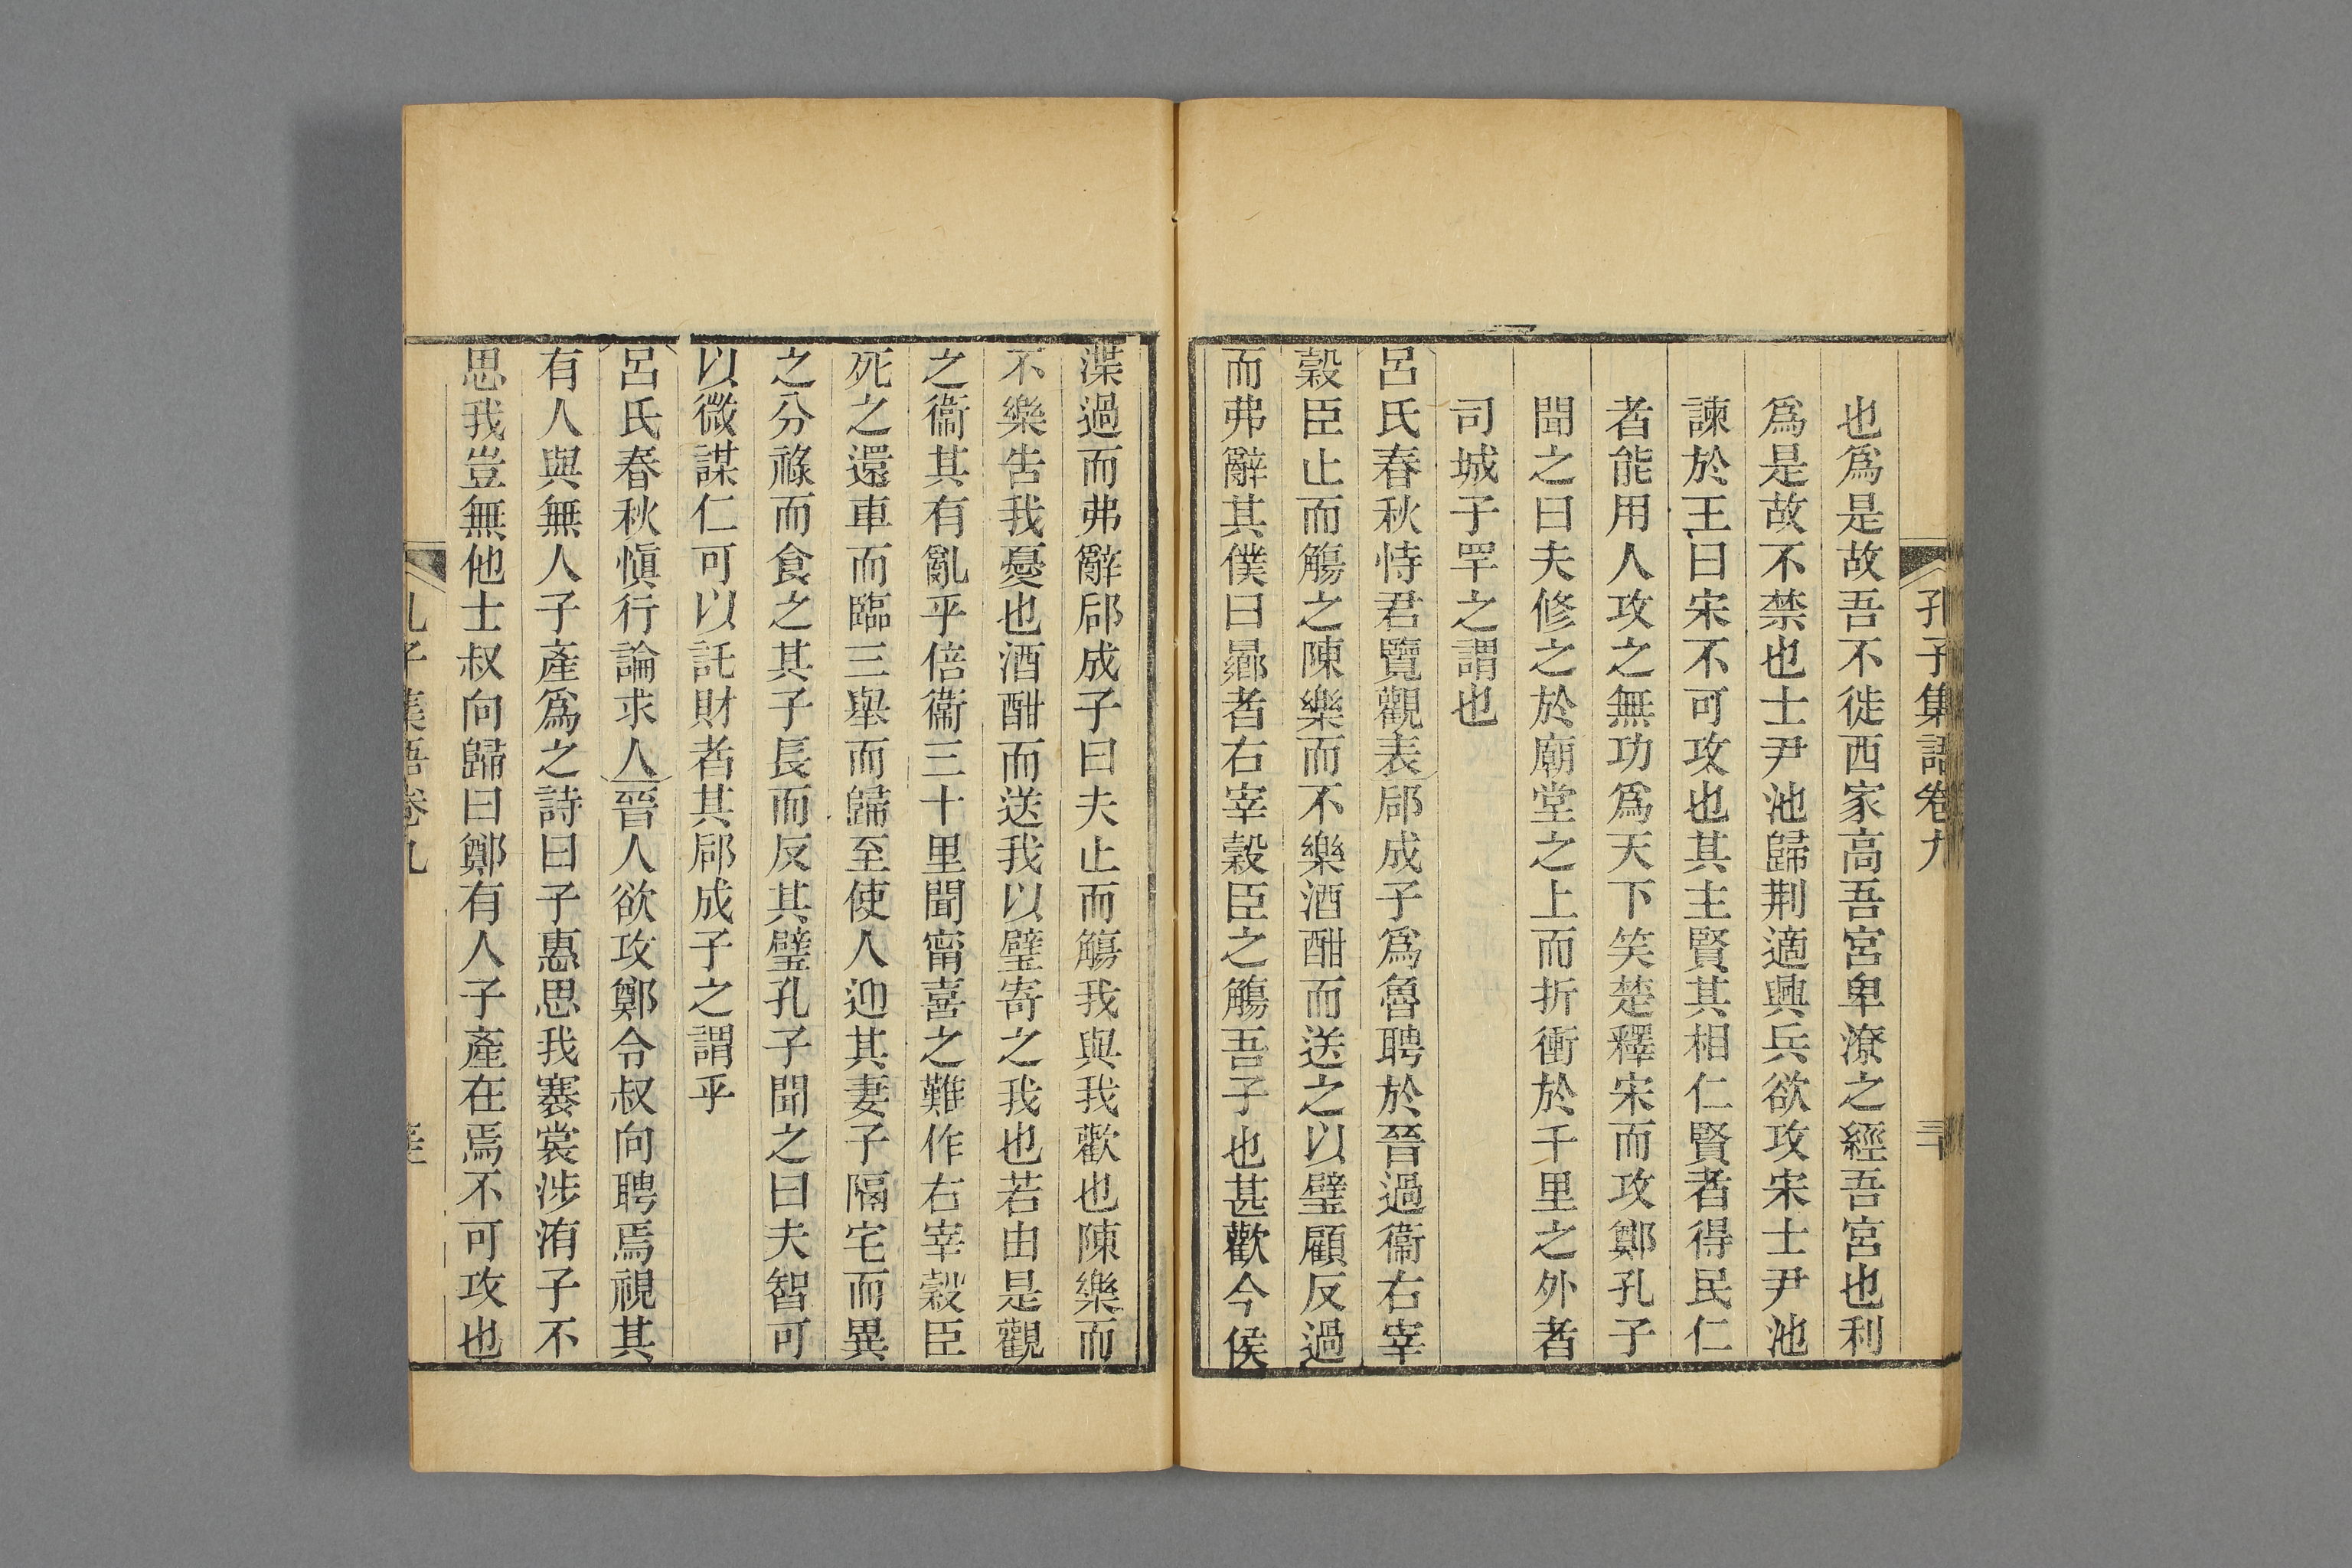 孔子集語卷九 三十
也爲是故吾不徙西家高吾宮卑潦之經吾宮也利
爲是故不禁也士尹池歸荆適興兵欲攻宋士尹池
諫於王曰宋不可攻也其主賢其相仁賢者得民仁
者能用人攻之無功爲天下笑楚釋宋而攻鄭孔子
聞之曰夫修之於廟堂之上而折衝於千里之外者
司城子罕之謂也
呂氏春秋恃君覽觀表郈成子爲魯聘於晉過衞右宰
穀臣止而觴之陳樂而不樂酒酣而送之以璧顧反過
而弗辭其僕曰曏者右宰穀臣之觴吾子也甚歡今侯
渫過而弗辭郈成子曰夫止而觴我與我歡也陳樂而
不樂告我憂也酒酣而送我以璧寄之我也若由是觀
之衞其有亂乎倍衞三十里聞甯喜之難作右宰穀臣
死之還車而臨三舉而歸至使人迎其妻子隔宅而異
之分祿而食之其子長而反其璧孔子聞之曰夫智可
以微謀仁可以託財者其郈成子之謂乎
呂氏春秋愼行論求人晉人欲攻鄭令叔向聘焉視其
有人與無人子產爲之詩曰子惠思我褰裳涉洧子不
思我豈無他士叔向歸曰鄭有人子產在焉不可攻也
孔子集語卷九